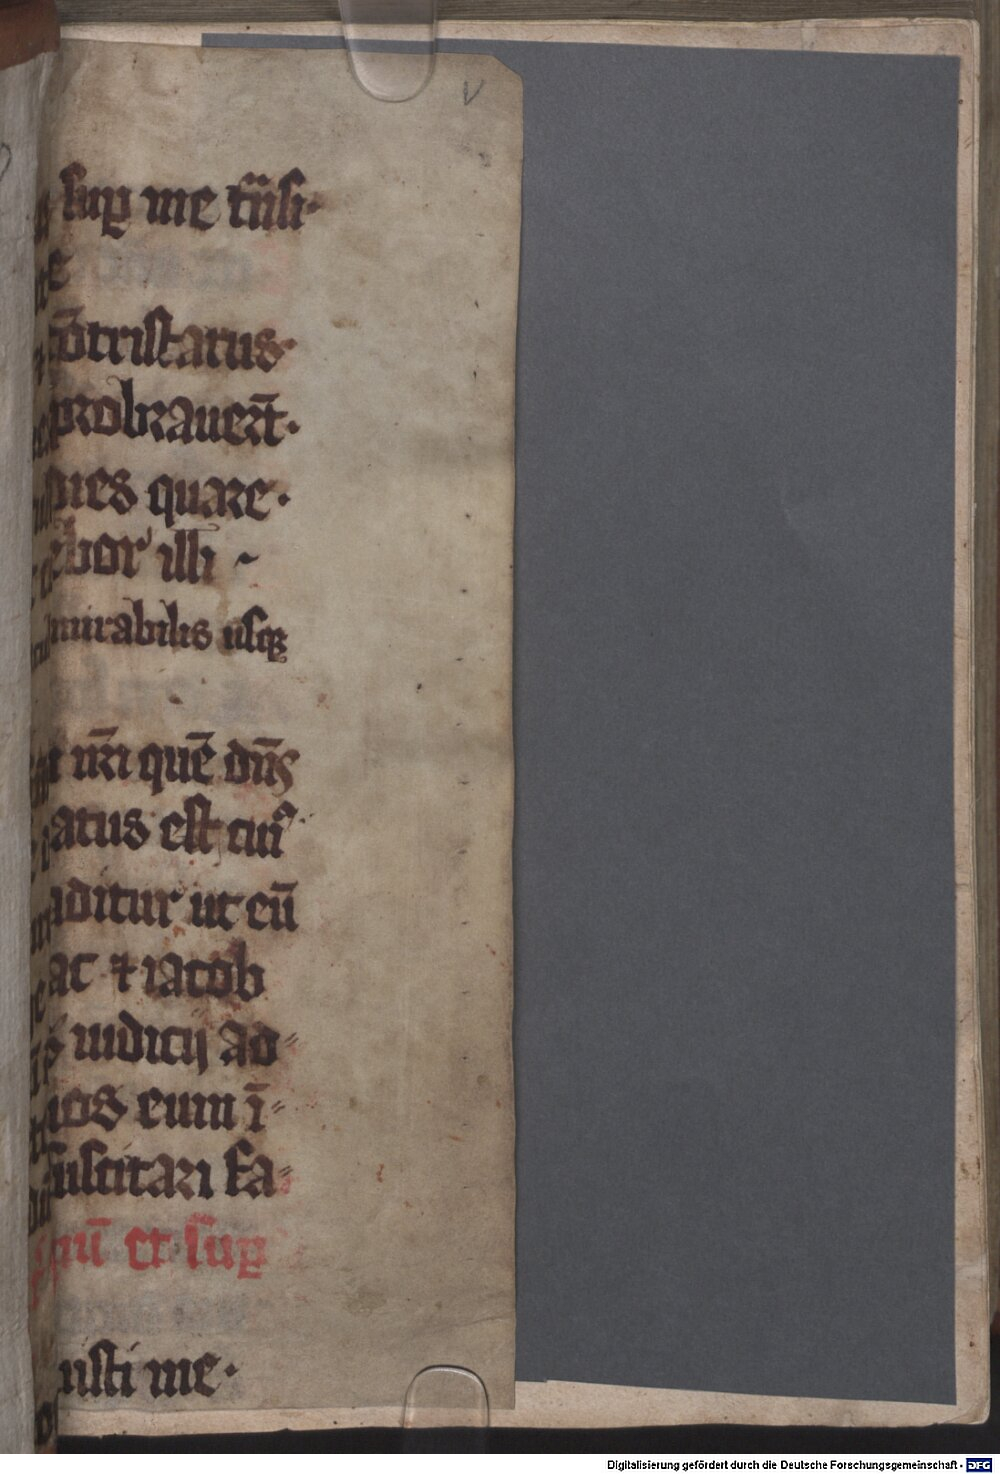 V
sup me tñsi·
te
cōtristatus·
probrauert̄·
pies quare·
ebor illi ~
mirabilis usq;
nr̄i quē dn̄s
atus est cui9
aditur ut eū
ac ⁊ iacob
iudicij ao⸗
ios eum ī⸗
suscitari fa⸗
ū et sup
uisti me·
Digitalisierung gefördert durch die Deutsche Forschungsgemeinschaft · DFG